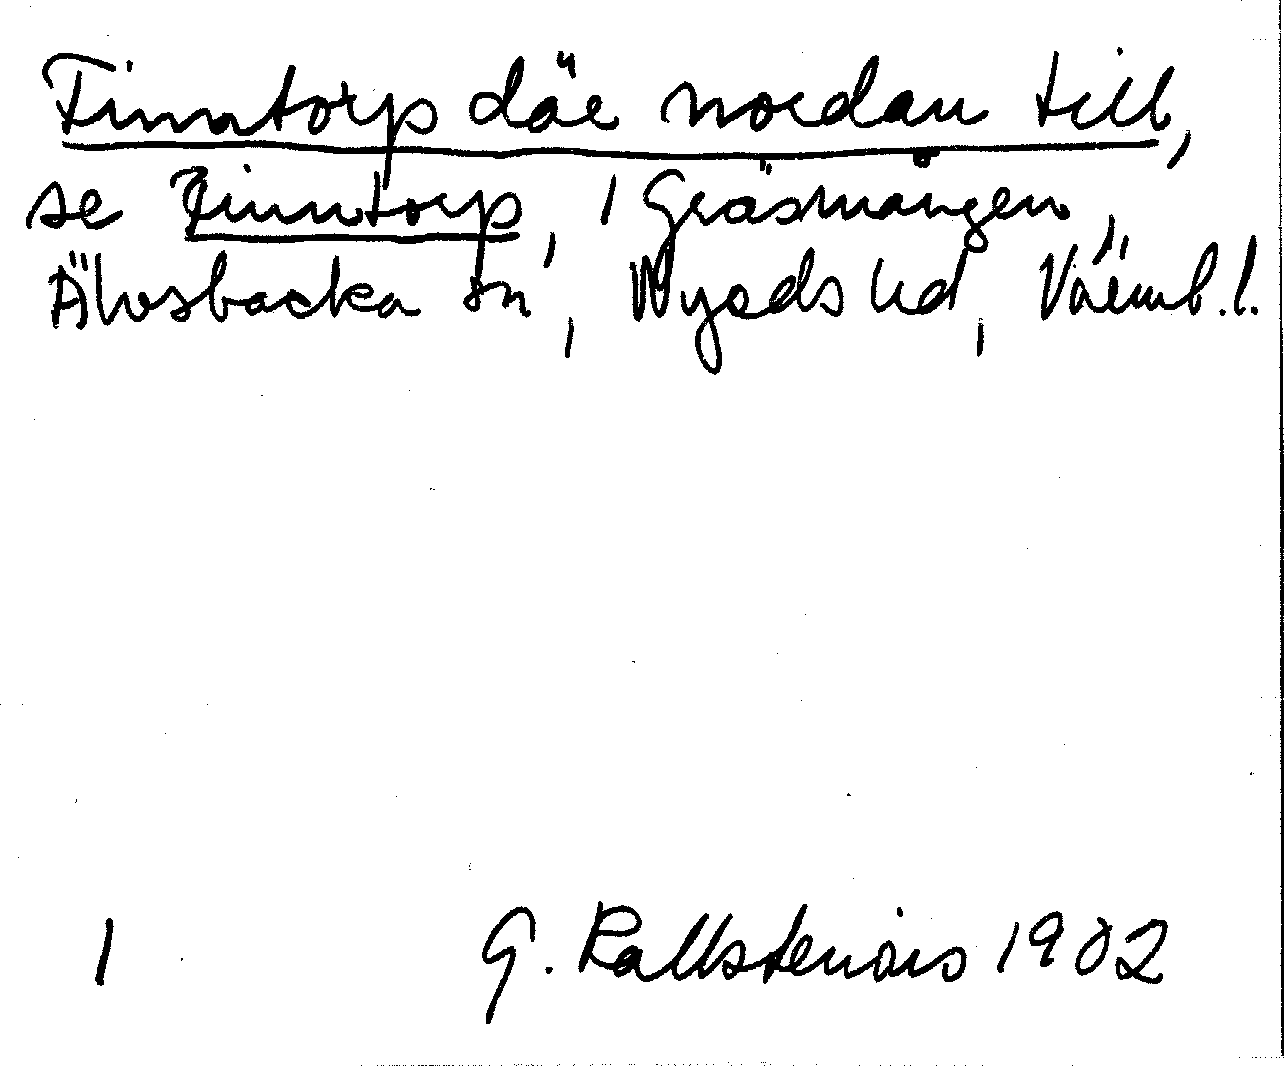 Finntorp där nordan till,
se Finntorp, 1 Gräsmången,
Älvsbacka sn, Nyeds hd, Värml. l.
1 G. Kallstenius 1902